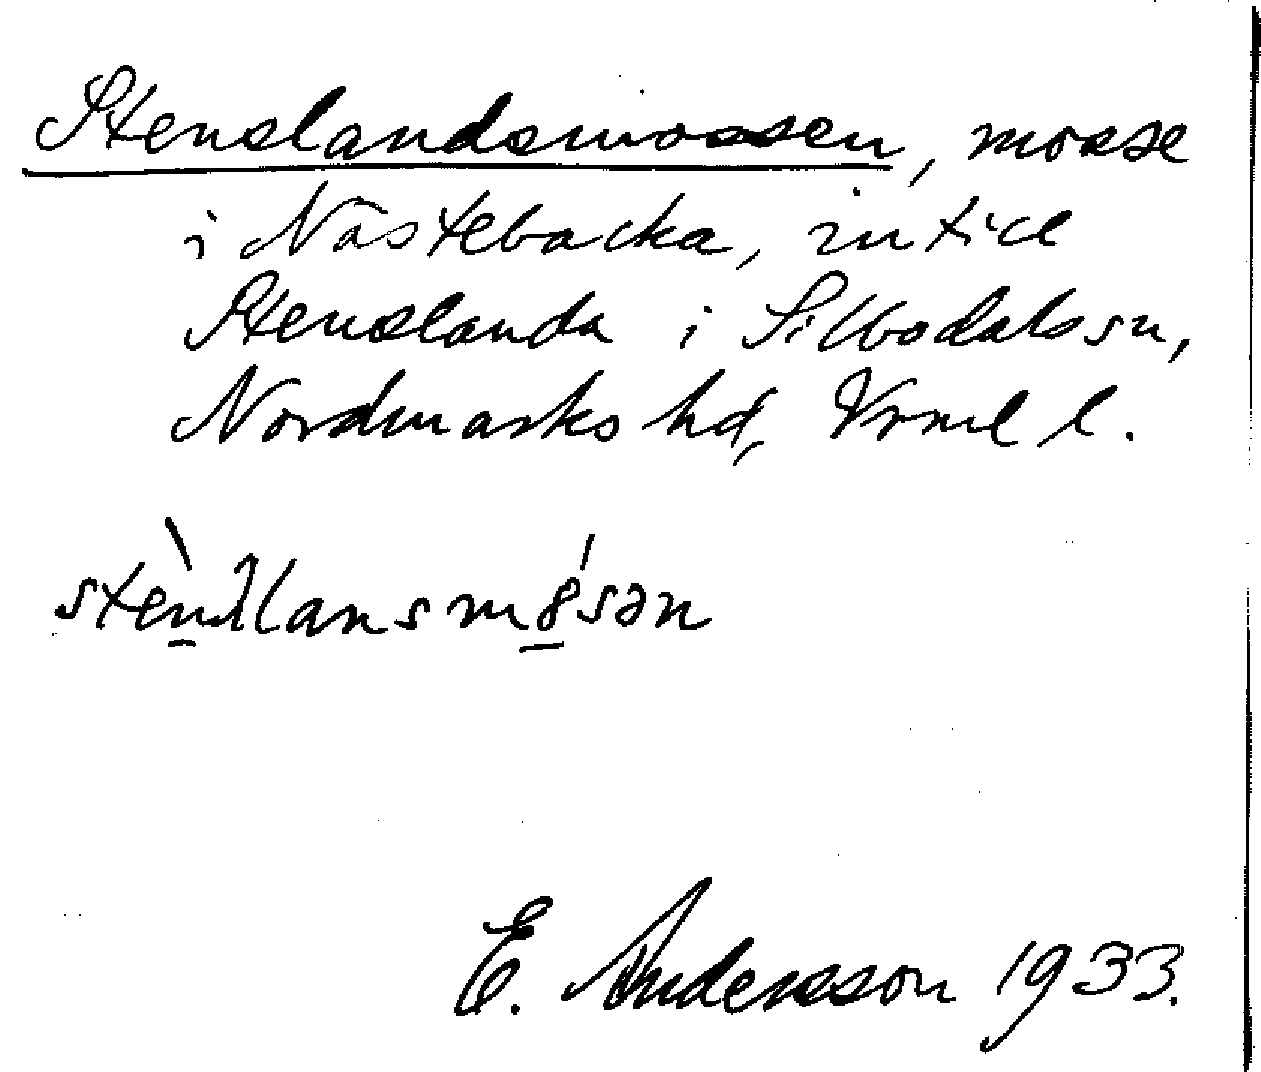 Stenslandsmossen, mosse
i Nästebacka, intill
Stenslanda i Silbodals sn,
Nordmarks hd, Vrml l.
stèn̲λlansmó̲sən
E. Andersson 1933.